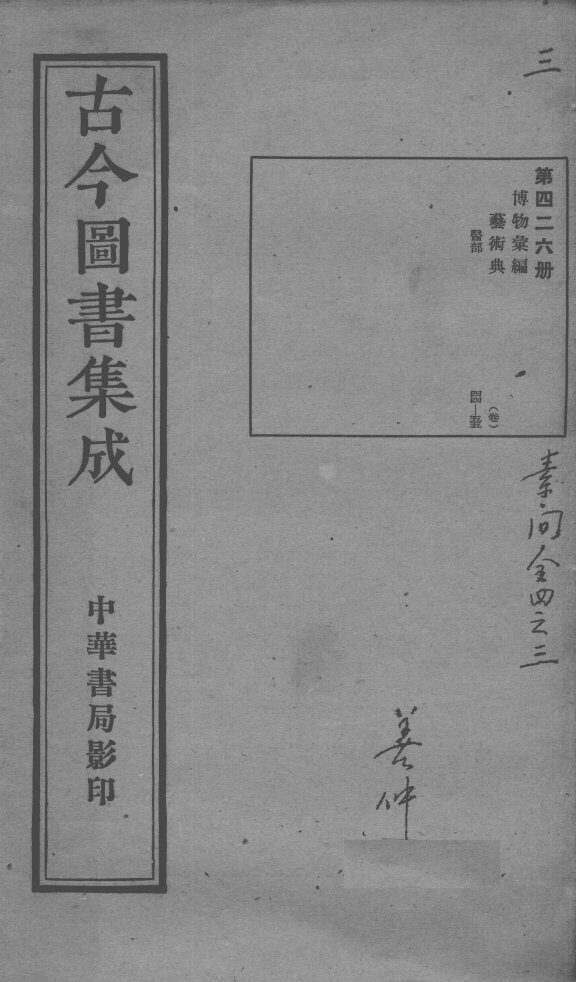 三
第四二六册
博物彙編
藝術典
醫部
(卷)
素问全四之三
善仲
古今圖書集成
中華書局影印